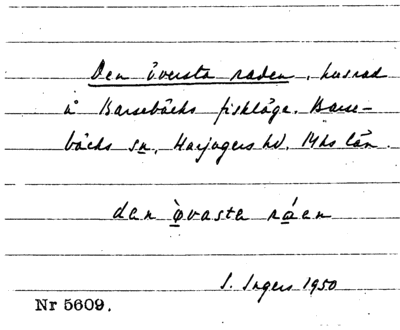 Den översta raden, husrad
å Barsebäcks fiskläge. Barse-
bäcks sn, Harjagers hd. Mhs län.
den òvasta ráen
I. Ingers 1950
Nr 5609.